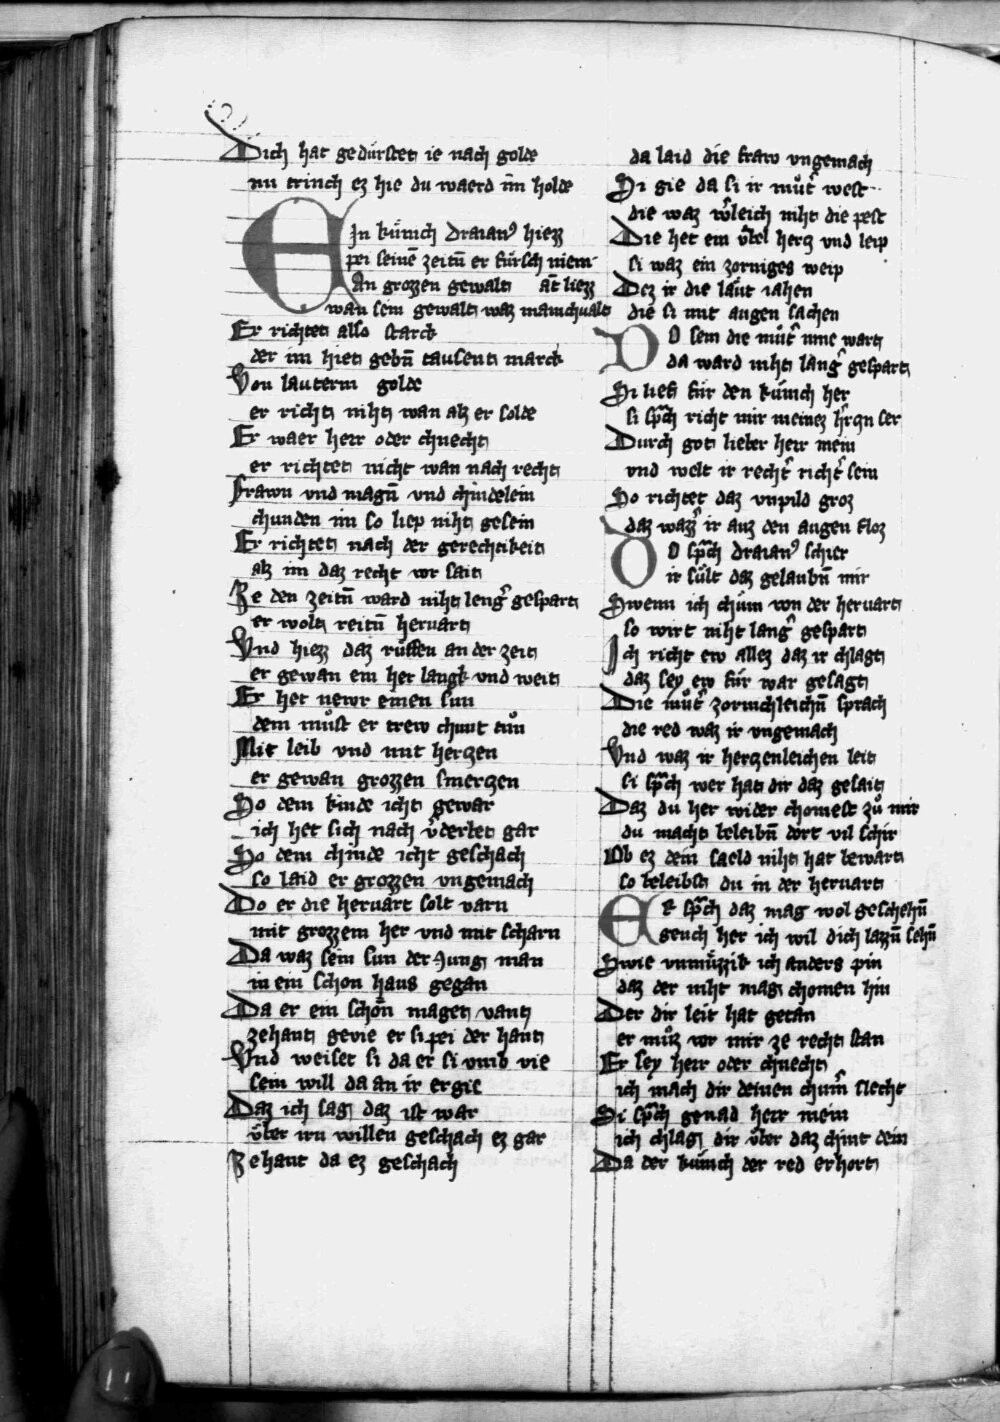 Dich hat gedürstet ie nach golde
nu trinch ez hie du waerd im holde
Ein künich Draian⁹ hiezz
pei seinē zeitn̄ er fürsch niem
An grozzen gewalt āt liezz
wan sem gewalt waz manichualt
Er richtet also starck
der im hiet gebn̄ tausent marck
Von lauterm golde
er richt niht wan alz er solde
Er waer herr oder chnecht
er richtet nicht wan nach recht
Frawn vnd magn̄ vnd chindelein
chunden im so liep niht gesein
Er richtet nach der gerechtikeit
alz im daz recht vor sait
Ze den zeitn̄ ward niht leng᷑ gespart
er wolt reitn̄ hervart
Vnd hiezz daz rüffen an der zeit
er gewan ein her langk vnd weit
Er het newr einen sun
dem muͦst er trew chunt tuͦn
Mit leib vnd mit herczen
er gewan grozzen smerczen
So dem kinde icht gewar
ich het sich nach v᷑derbet gar
So dem chinde icht geschach
so laid er grozzen vngemach
Do er die hervart solt varn
mit grozzem her vnd mit scharn
Da waz sein sun der Jung man
in ein schon haus gegan
Da er ein schön̄ maget vant
zehant gevie er si pei der hant
Vnd weiset si da er si vmb vie
sein will da an ir ergie
Daz ich sag daz ist war
über irn willen geschach ez gar
Zehant da ez geschach
da laid die fraw vngemach
Si gie da si ir muͦt᷑ west
die waz w᷑leich niht die pest
Die het ein v̈bel hercz vnd leip
si waz ein zorniges weip
Dez ir die läut iahen
die si mit augen sachen
DO sein die muͦt᷑ inne wart
da ward niht lang᷑ gespart
Si lieff für den künich her
si sp᷑ch richt mir meinez h᷑czn ser
Durch got lieber herr mein
vnd welt ir recht᷑ richt᷑ sein
So richtet daz vnpild groz
daz wazz᷑ ir auz den augen floz
DO sp᷑ch draian⁹ schier
ir sült daz gelaubn̄ mir
Swenn ich chüm von der hervart
so wirt niht lang᷑ gespart
Ich richt ew allez daz ir chlagt
daz sey ew für war gesagt
Die muͦt᷑ zornichleichn̄ sprach
die red waz ir vngemach
Vnd waz ir herczenleichen leit
si sp᷑ch wer hat dir daz gesait
Daz du her wider chomest zuͦ mir
du macht beleibn̄ dort vil schir
Ob ez dein saeld niht hat bewart
so beleibst du in der hervart
ER sp᷑ch daz mag wol geschehn̄
geuch her ich wil dich lazzn̄ sehn̄
Swie vnmüzzik ich anders pin
daz der niht mag chomen hin
Der dir leit hat getan
er muͦz vor mir ze recht stan
Er sey herr oder chnecht
ich mach dir deinen chum᷑ slecht
Si sp᷑ch genad herr mein
ich chlag dir über daz chint dein
Da der künich der red erhort